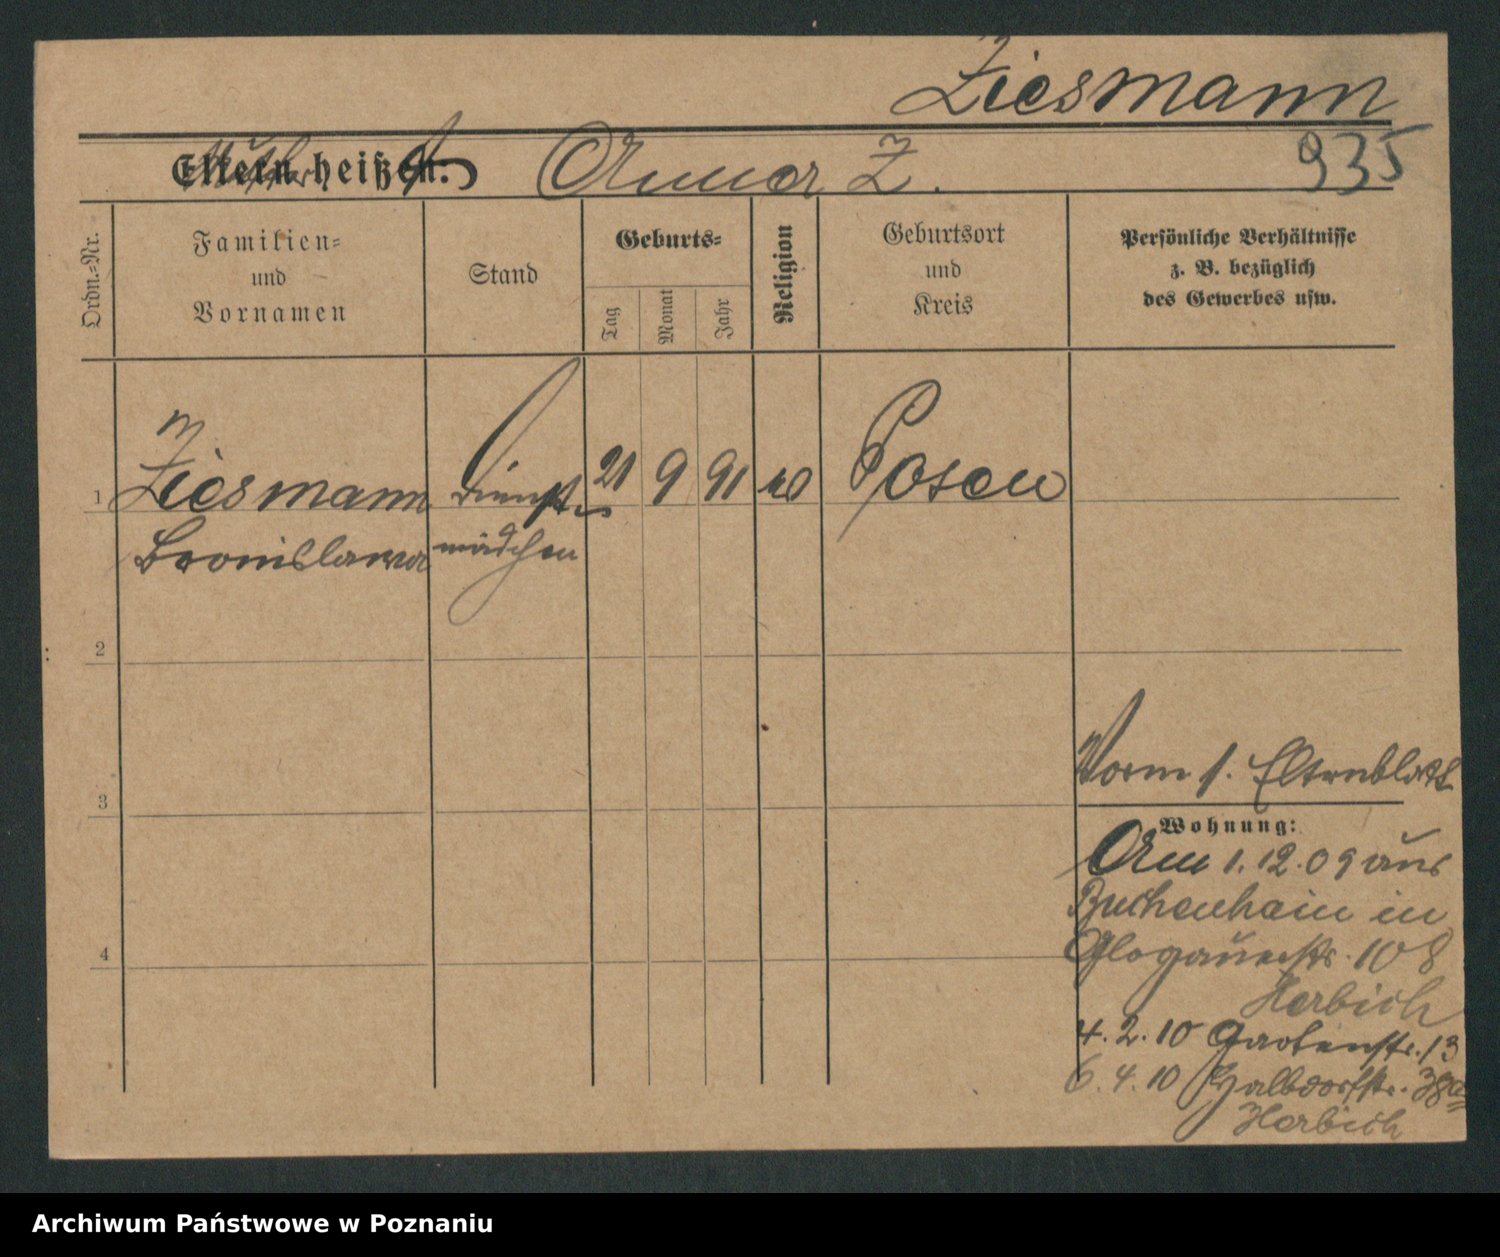 Ziesmann
Eltern heißen: Anna Z.
935
Ordn.=Nr.
Familien=
und
Vornamen
Stand
Geburts=
Tag
Monat
Jahr
Religion
Geburtsort
und
Kreis
Persönliche Verhältnisse
z. B. bezüglich
des Gewerbes usw.
1 Ziesmann Dienst= 21 9 91 Posen
Bronislawa mädchen
2
3
4
Vorm s. Elternblatt
Wohnung:
Am 1.12.09 aus
Buchenhain in
Glogauerstr. 108
Herbich
4.2.10 Gartenstr. 13
6.4.10 Halbdorfstr. 38a
Herbich
Archiwum Państwowe w Poznaniu